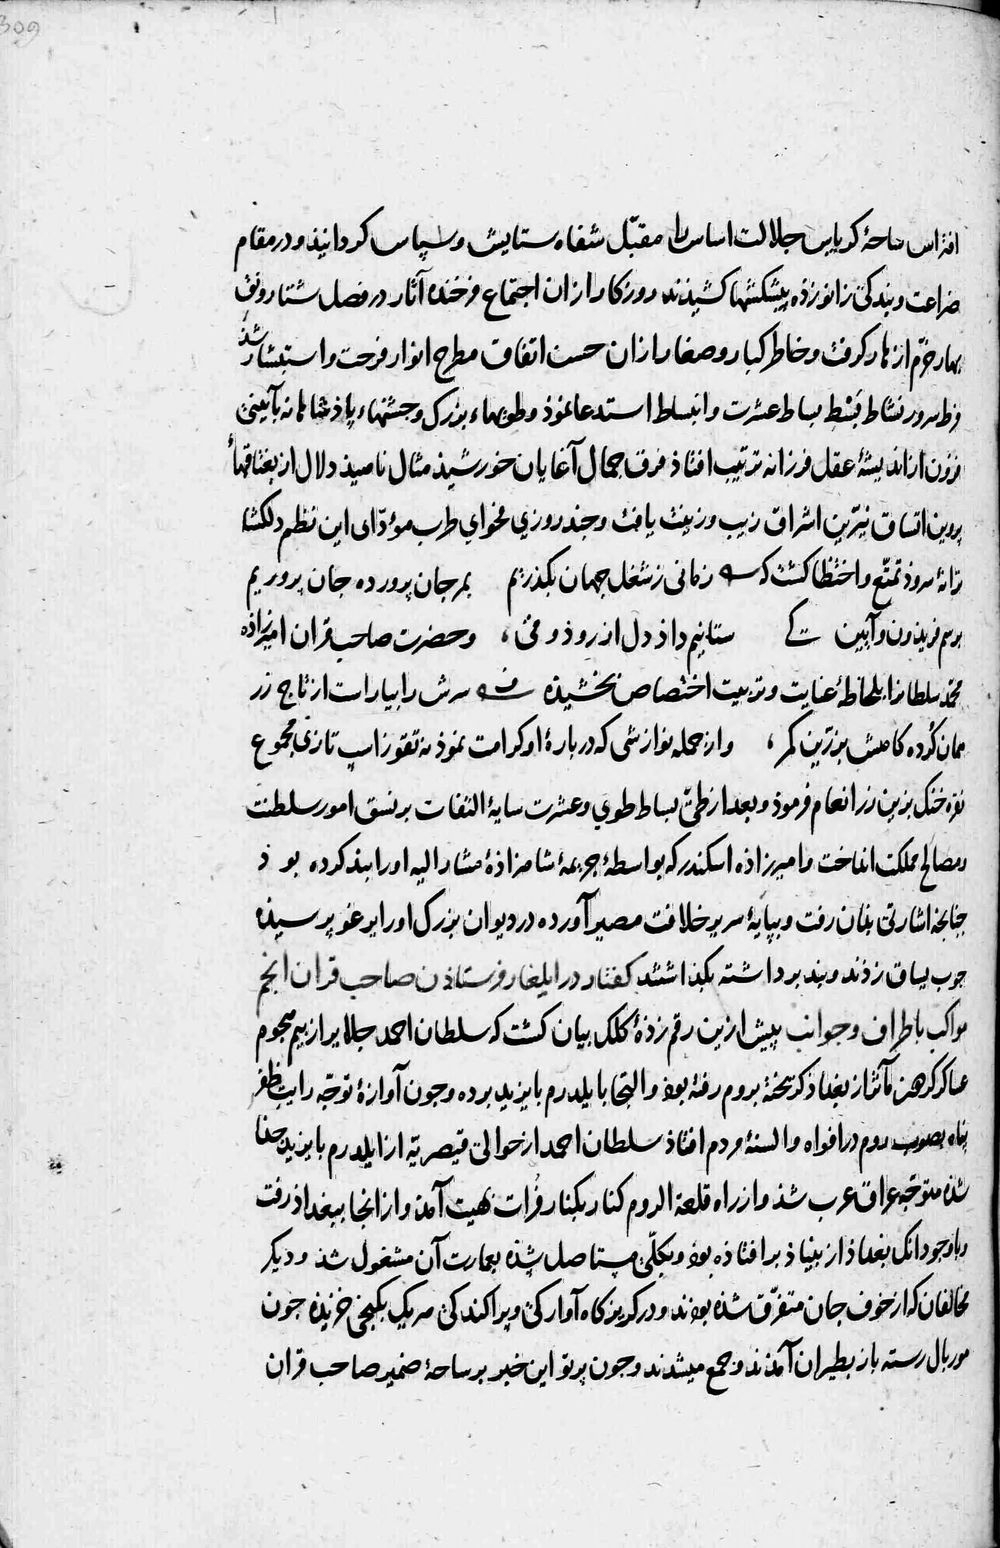 309
ساحهٔ کریاس جلالت اساس را مقبّل شفاه ستایش و سپاس کردانیذند و در مقام
ضراعت و بندکی زانو زذه پیشکشها کشیذند و روزکار از ان اجتماع فرخنده آثار در فصل شتا رونق
بهار خرّم از هار کرفت و خاطر کبار و صغار از ان حسن اتفاق مطرح انوار فرحت و استبشار شذ
فرط سرور نشاط بَسْط بساط عشرت و انبساط استدعا نموذ و طویهاء بزرک و جشنهاء پاذشاهانه بآئینی
فزون از اندیشهٔ عقل فرزانه ترتیب افتاذ جمال آغایان خورشیذ مثال ناهیذ دلال از بغتاقهاء
پروین اتساق نیّرین اشراق زیب و زینت یافت و چند روزی فحوای طرب مؤدّای این نظم دلکشا
ترانهٔ سروذ تمتّع و احتظا کشت که زمانی ز شغل جهان بکذریم بمرجان پرورده جان پروریم
برسم فریذون و آیین کی ستانیم داذ دل از روذ و می، و حضرت صاحب قران امیرزاده
محمد سلطان را بملاحظهٔ عنایت و تربیت اختصاص بخشیذه سرش را بیاراست از تاج زر
میان کرده کامش بزرّین کمر، و از جمله نوازشی که دربارهٔ او کرامت نموذ نه تقوز اسپ تازی مجموع
نقره خنک بزین زر انعام فرموذ و بعد از طیّ بساط طوی و عشرت سایهٔ التفات بر نسق امور سلطنت
و مصالح مملکت انداخت و امیرزاذه اسکندر که بواسطهٔ جریمهٔ شاهزاذهٔ مشار الیه او را بند کرده بوذ
چنانچه اشارتی بذان رفت و بپایهٔ سریر خلافت مصیر آورده در دیوان بزرک او را یرغو پرسیذه
چوب یساق زذند و بند برداشته بکذاشتند کفتار در ایلغار فرستاذن صاحب قران انجم
مواکب باطراف و جوانب پیش از ین رقم زذهٔ کلک بیان کشت که سلطان احمد جلایر از بیم هجوم
عساکر کردون مآثر از بغداذ کریخته بروم رفته بوذ و التجا بایلدرم بایزید برده و چون آوازهٔ توجّه رایت ظفر
پناه بصوب روم در افواه و السنهٔ مردم افتاذ سلطان احمد از حوالی قیصریّه از ایلدرم بایزید جذا
شذه متوجّه عراق عرب شذ و از راه قلعة الروم کنار بکنار فُرات بهیت آمذ و از انجا ببغداذ رفت
و با وجود انک بغداذ از بنیاذ بر افتاذه بوذ و بکلّی مستاصل شذه بعمارت آن مشغول شذ و دیکر
مخالفان که از خوف جان متفرّق شذه بوذند و در کریزکاه آوارکی و پراکندکی هر یک بکنجی خزیذه چون
مور بال رسته باز بطیران آمذند و جمع میشدند و چون پرتو این خبر بر ساحهٔ ضمیر صاحب قران